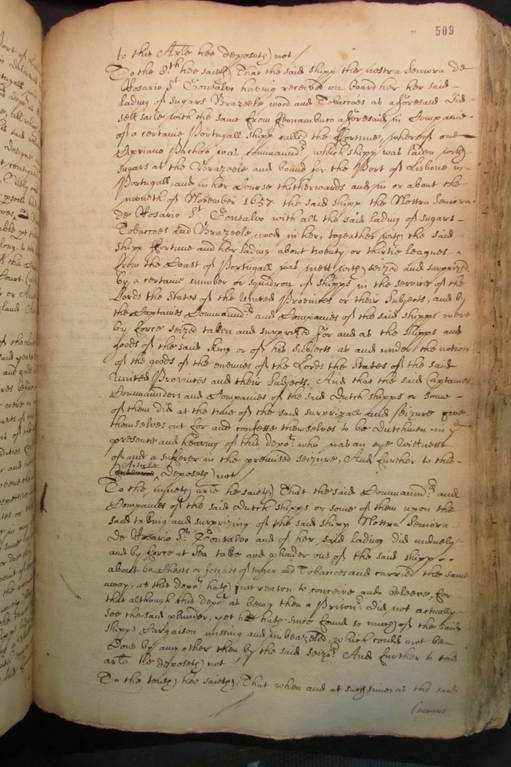 509
to this Arle hee deposeth not /
To the 8th hee saieth That the said shipp the Nostra Senora de
Rosario St Gonsalvo having received on board her her said
lading of sugars Brazeele wood and Tobaccoes at aforesaid did
sett saile with the same from Fernambuco aforesaid, in Companie
of a certaine Portugall shipp called the Fortune, whereof one
was Commandr, which shipp was laden with
sugars at the Brazeele and bound for the Port of Lisbone in
Portugall, and in her Course thitherwards and in or about the
moneth of November 1657 the said shipp the Nostra Senora
de Rosario St Gonsalvo with all the said lading of sugars
Tobaccoes and Brazeele wood in her, togeather with the said
shipp Fortune and her lading about twenty or thirtie leagues
from the Coast of Portugall was mett with seized and surprized
by a certaine number or squadron of shipps in the service of the
Lords the States of the United Provinces or their Subjects, and by
the Captaines Commandrs and Companies of the said shipps were
by force seized taken and surprized for and as the shipps and
goods of the said King or of his subjects as and under the notion
of the goods of the enemies of the Lords the States of the said
United Provinces and their Subjects, And that the said Captaines
Commanders and Companies of the said Dutch shipps or some
of them did at the time of the said surprizall and seizure give
themselves out for and confesse themselves to be Dutchmen in ye
presence and hearing of this depot who was an eye wittnesse
of and a sufferer in the premised seizure, And further to this
Article
deposeth not
To the nineth arle hee saieth That the said Commandrs and
Companies of the said Dutch shipps or some of them upon the
said taking and surprizing of the said shipp Nostra Senora
de Rosario St Gonsalvo and of her said lading did
and by force at Sea take and plunder out of the said shipp
about chests or of sugar and Tobaccoes and carried the same
away, as this depot hath just reason to conceive and beleeve, for
that although this depot as being then a Prisoner did not actually
see the said plunder, yet hee hath since found so much of the said
shipps Cargaison missing and imbeazeled, which could not be
done by any other then by the said seizrs And further to this
arle he deposeth not /
To the tenth hee saieth, That when and at such time as the said